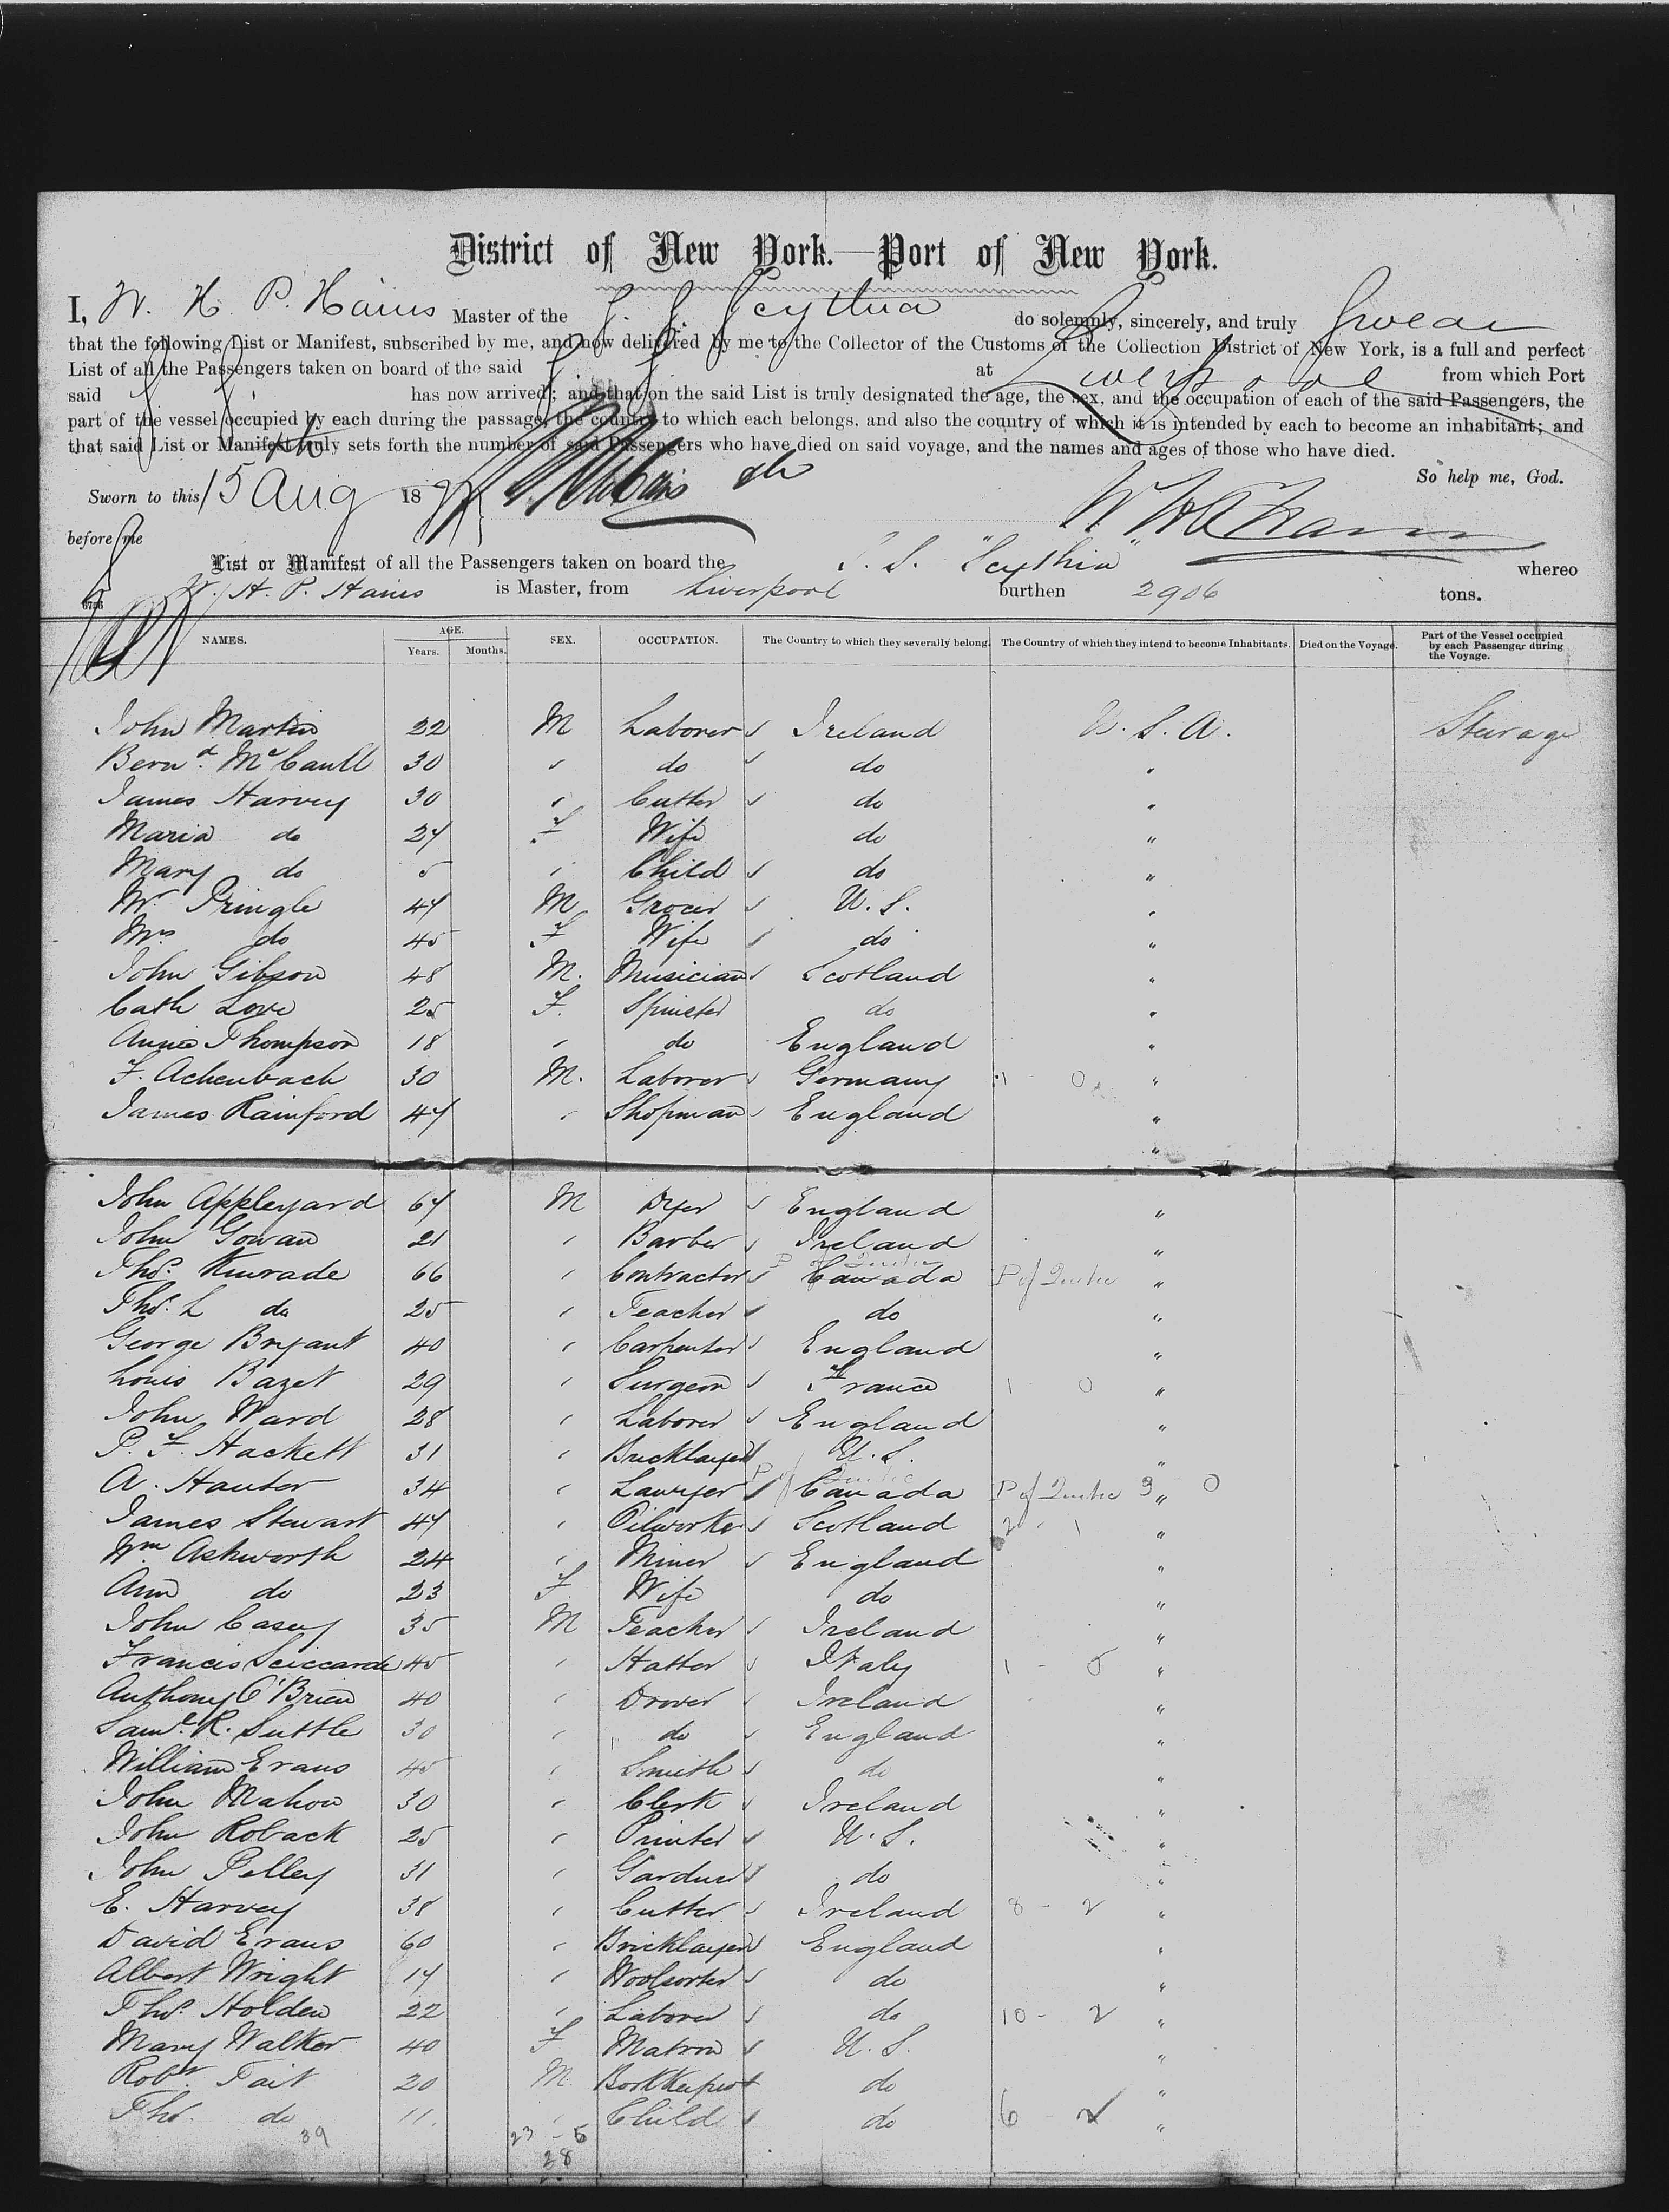 District of New York.—Port of New York.
I, W. H. P. Hains Master of the S. S. Scythia do solemnly, sincerely, and truly Swear
that the following List or Manifest, subscribed by me, and now delivered by me to the Collector of the Customs of the Collection District of New York, is a full and perfect
List of all the Passengers taken on board of the said at Liverpool from which Port
said has now arrived; and that on the said List is truly designated the age, the sex, and the occupation of each of the said Passengers, the
part of the vessel occupied by each during the passage, the country to which each belongs, and also the country of which it is intended by each to become an inhabitant; and
that said List or Manifest truly sets forth the number of said Passengers who have died on said voyage, and the names and ages of those who have died.
So help me, God.
Sworn to this 15th Aug 18
before me
List or Manifest of all the Passengers taken on board the S. S. "Scythia" whereo
W. H. P. Hains is Master, from Liverpool burthen 2906 tons.
NAMES. AGE. Years. Months. SEX. OCCUPATION. The Country to which they severally belong. The Country of which they intend to become Inhabitants. Died on the Voyage. Part of the Vessel occupied by each Passenger during the Voyage.
John Martin 22 M Laborer Ireland U.S.A. Steerage
Bernd. McCaull 30 " do do "
James Harvey 30 " Cutter do "
Maria do 27 F Wife do "
Mary do 5 " Child do "
Mr. Pringle 47 M Grocer U.S. "
Mrs do 45 F Wife do "
John Gibson 48 M. Musician Scotland "
Cath Love 25 F. Spinster do "
Annie Thompson 18 " do England "
F. Achenbach 30 M. Laborer Germany 1 - 0 "
James Rainford 47 " Shopman England "
"
John Appleyard 67 M Dyer England "
John Gowan 21 " Barber Ireland "
Thos. Kinrade 66 " Contractor Canada P of Quebec "
Thos. L do 25 " Teacher do "
George Bryant 40 " Carpenter England "
Louis Bazet 29 " Surgeon France 1 0 "
John Ward 28 " Laborer England "
P. F. Hackett 31 " Bricklayer U.S. "
A. Hauter 34 " Lawyer Canada P of Quebec 3 " 0
James Stewart 47 " Oilworker Scotland 2 - 1 "
Wm Ashworth 24 " Miner England "
Ann do 23 F Wife do "
John Casey 35 M Teacher Ireland "
Francis Sciccarde 45 " Hatter Italy 1 - 0 "
Anthony O'Brien 40 " Drover Ireland "
Saml. R. Suttle 30 " do England "
William Evans 45 " Smith do "
John Mahon 30 " Clerk Ireland "
John Roback 25 " Printer U.S. "
John Pelley 31 " Gardner do "
E. Harvey 38 " Cutter Ireland 8 - 2 "
David Evans 60 " Bricklayer England "
Albert Wright 17 " Woolsorter do "
Thos. Holden 22 " Laborer do 10 - 2 "
Mary Walker 40 F Matron U.S. "
Robt Tait 20 M. Bookkeeper do "
Thos. do 11 " Child do 6 - 2 "
39 23 - 5
28